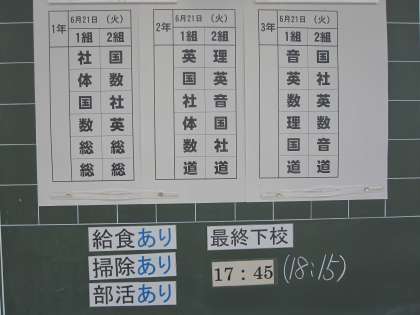 1年 6月21日 (火)
1組 2組
社 国
体 数
国 社
数 英
総 総
総 総
2年 6月21日 (火)
1組 2組
英 理
国 英
社 音
体 国
数 社
道 道
3年 6月21日 (火)
1組 2組
音 国
英 社
数 英
理 数
国 音
道 道
給食あり 最終下校
掃除あり 17:45 (18:15)
部活あり